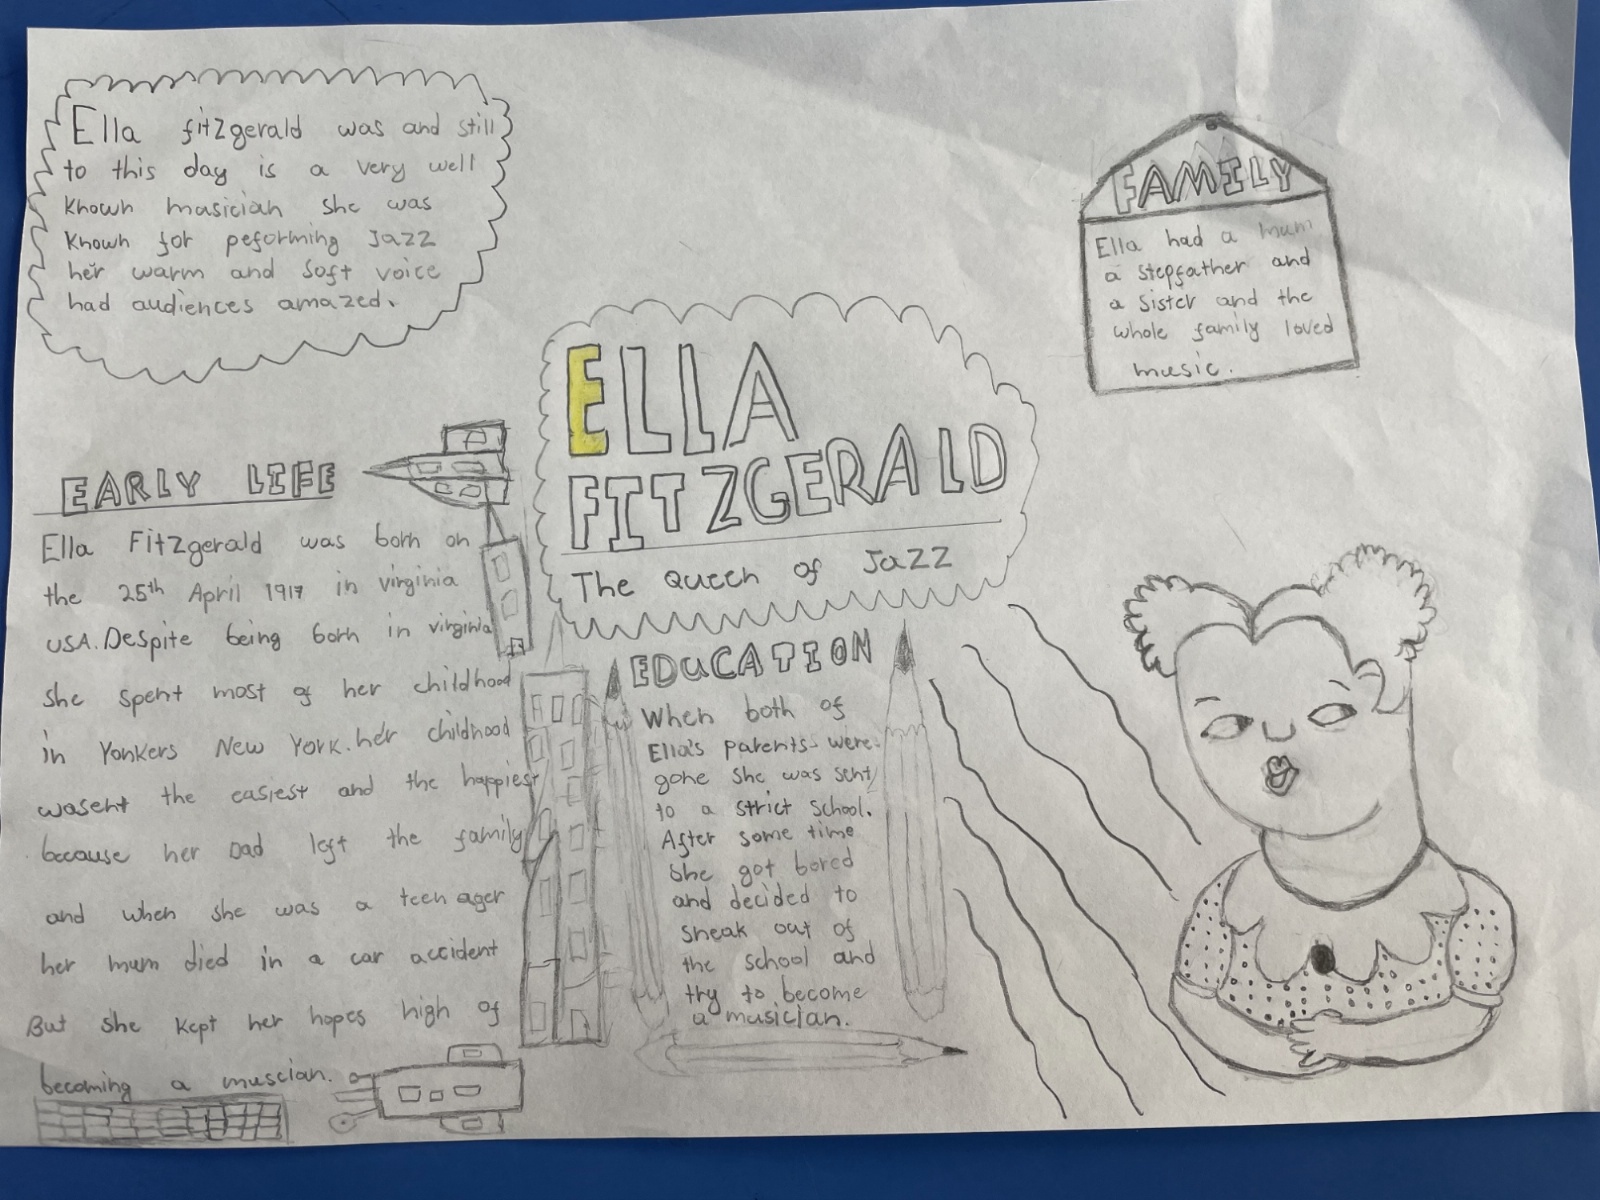 Ella fitzgerald was and still
to this day is a very well
known musician she was
known for peforming Jazz
her warm and soft voice
had audiences amazed.
ELLA
FITZGERALD
The Queen of Jazz
FAMILY
Ella had a mum
a stepfather and
a sister and the
whole family loved
music.
EARLY LIFE
Ella Fitzgerald was born on
the 25th April 1917 in virginia
USA. Despite being born in virginia
she spent most of her childhood
in Yonkers New York. her childhood
wasent the easiest and the happiest
because her Dad left the family
and when she was a teen ager
her mum died in a car accident
But she kept her hopes high of
becoming a muscian.
EDUCATION
When both of
Ella's parents were
gone she was sent
to a strict school.
After some time
she got bored
and decided to
sneak out of
the school and
try to become
a musician.